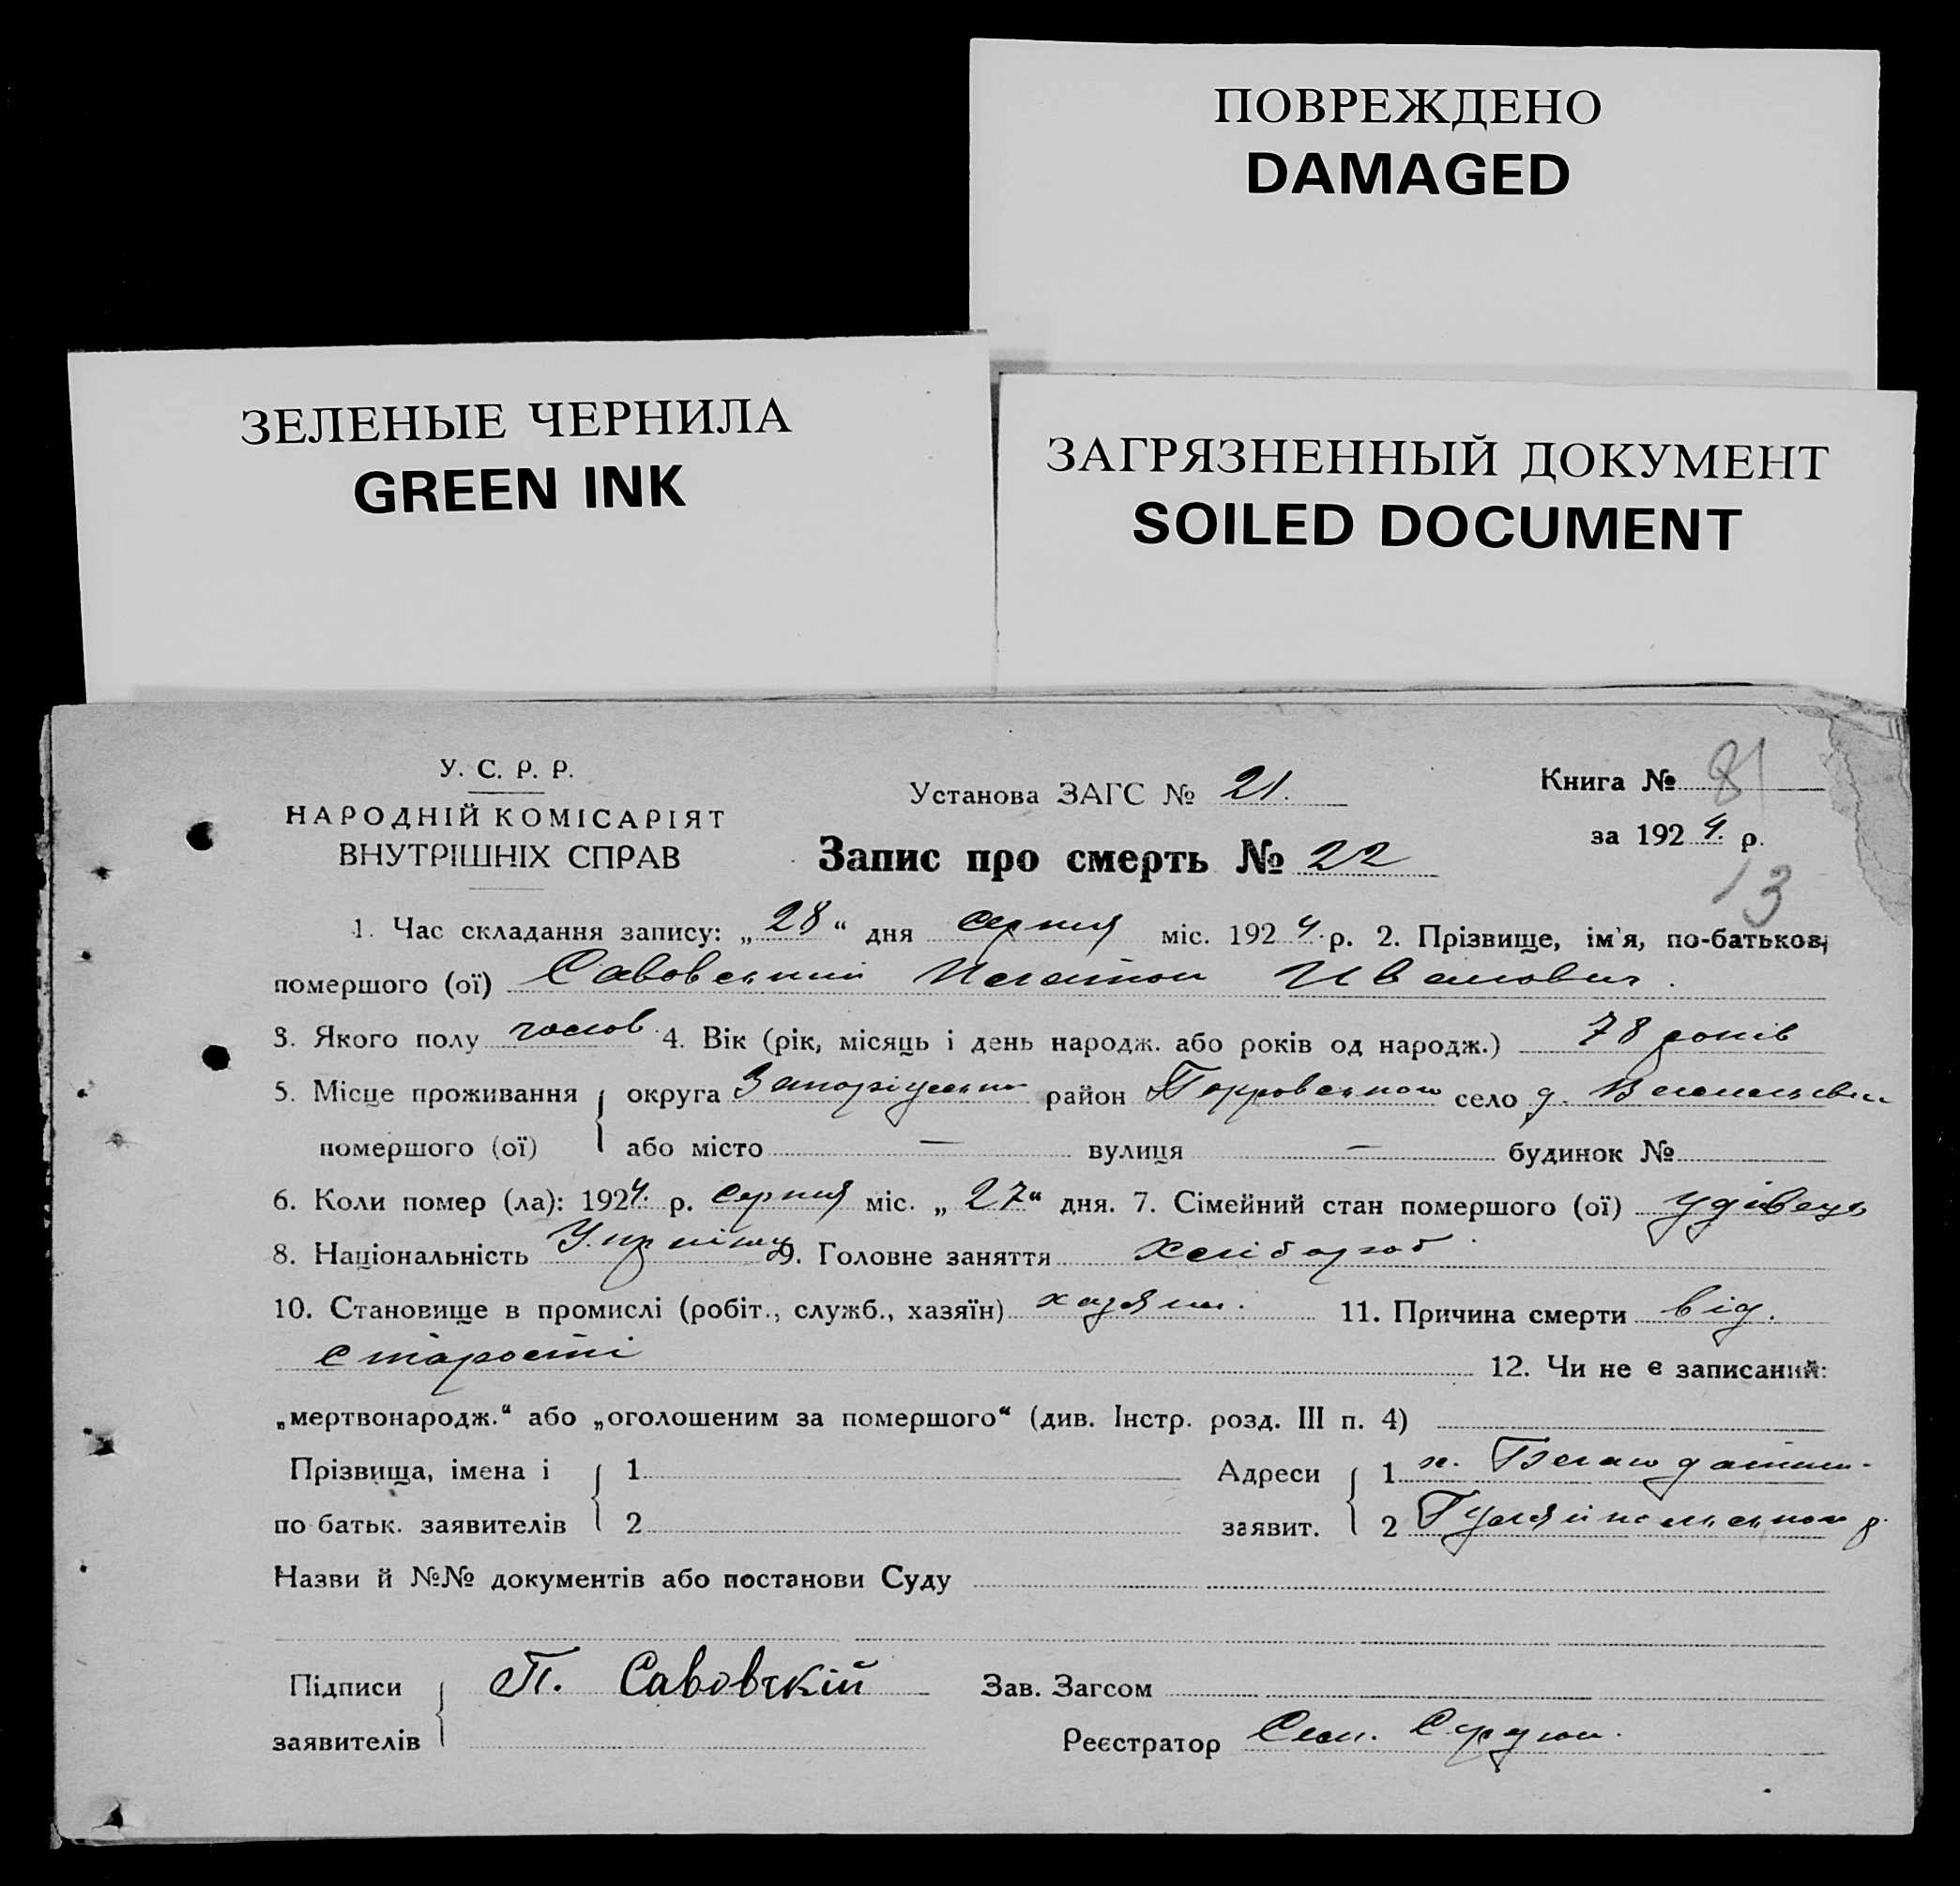 ПОВРЕЖДЕНО
DAMAGED
ЗЕЛЕНЫЕ ЧЕРНИЛА
GREEN INK
ЗАГРЯЗНЕННЫЙ ДОКУМЕНТ
SOILED DOCUMENT
У. С. Р. Р.
НАРОДНІЙ КОМІСАРІЯТ
ВНУТРІШНІХ СПРАВ
Установа ЗАГС № 21.
Запис про смерть № 22
Книга № 81
за 1924. р.
13
1. Час складання запису: „28“ дня серпня міс. 1924. р. 2. Прізвище, ім'я, по-батькові
помершого (ої) Савовский Игнатий Иванович.
3. Якого полу чолов. 4. Вік (рік, місяць і день народж. або років од народж.) 78 років
5. Місце проживання округа Запоріжська район Покровського село
помершого (ої) або місто — вулиця — будинок №
6. Коли помер (ла): 1924. р. серпня міс. „27“ дня. 7. Сімейний стан помершого (ої) удівець
8. Національність 9. Головне заняття хлібороб
10. Становище в промислі (робіт., служб., хазяїн) хазяин. 11. Причина смерти від.
старости 12. Чи не є записаний:
„мертвонародж.“ або „оголошеним за помершого“ (див. Інстр. розд. III п. 4)
Прізвища, імена і 1 Адреси 1 х.
по батьк. заявителів 2 заявит. 2 Гуляйпольского р.
Назви й №№ документів або постанови Суду
Підписи П. Савовскій Зав. Загсом
заявителів Реєстратор Сердюк.